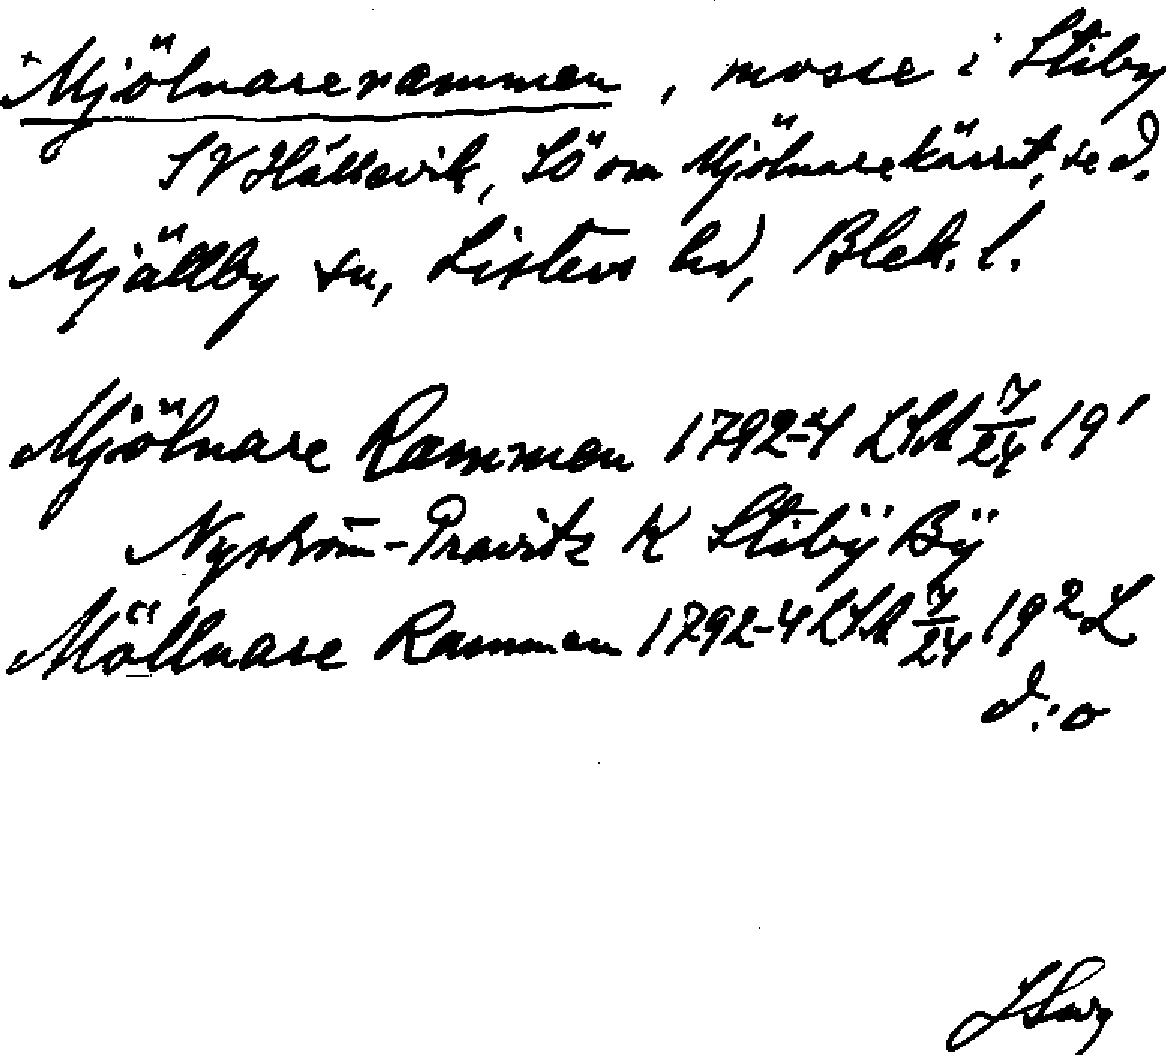 +Mjölnarerammen, mosse i Stiby
SV Hällevik, SÖ om Mjölnarekärret, se d.
Mjällby sn, Listers hd, Blek. l.
Mjölnare Rammen 1792-4 LSA 7/24 19¹
Nyström-Pravitz K Stibÿ Bÿ
Möllnare Rammen 1792-4 LSA 7/24 19² L
d:o